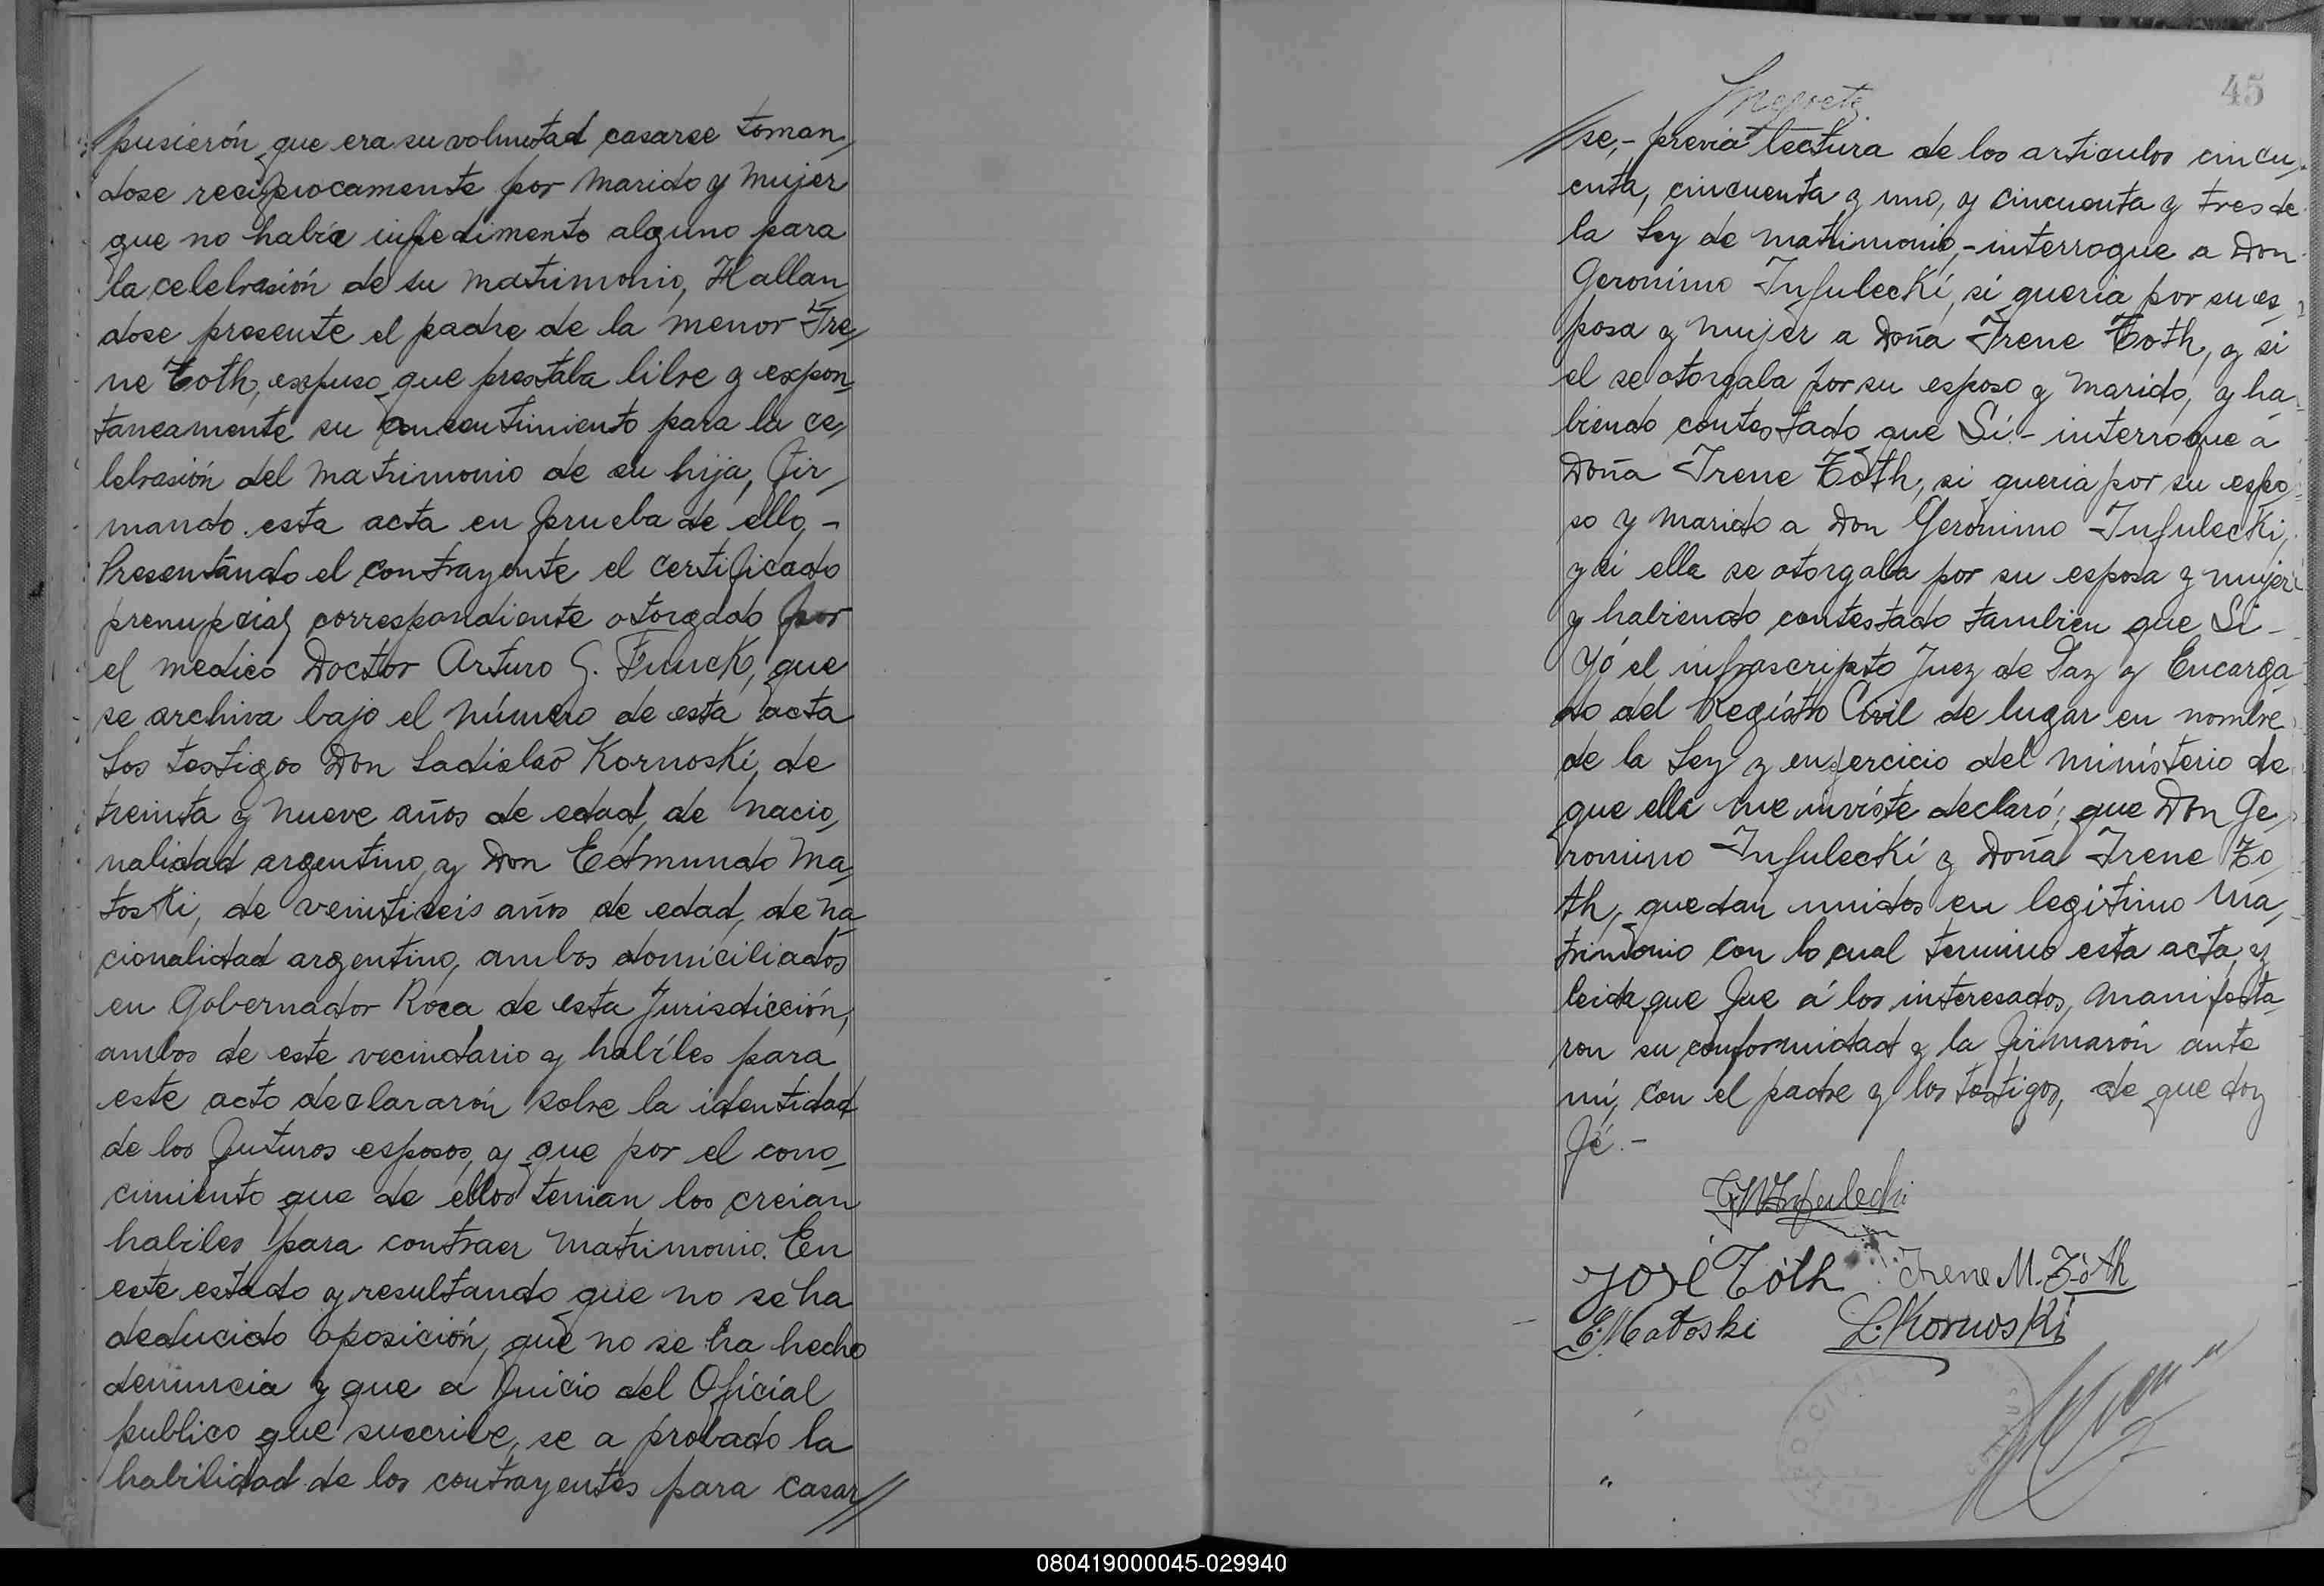 pusierón que era su volumtad casarse toman
dose reciprocamente por marido y mujer
que no había impedimento alguno para
la celebrasión de su matrimonio, Hallan
dose presente el padre de la menor Ire
ne Toth, expuso que prestaba libre y expon
taneamente su consentimiento para la ce
lebrasión del matrimonio de su hija, fir
mando esta acta en prueba de ello,-
Presentándo el contrayente el certificado
prenupcial correspondiente otorgado por
el medico Doctor Arturo G. Funck, que
se archiva bajo el número de esta acta
Los testigos Don Ladislao Kornoski, de
treinta y nueve años de edad, de nacio
nalidad argentino, y Don Edmundo Ma
toski, de veintiseis años de edad, de na
cionalidad argentino, ambos domiciliados
en Gobernador Roca de esta Jurisdicción,
ambos de este vecindario y habíles para
este acto declararón sobre la identidad
de los futuros esposos, y que por el cono
cimiento que de ellos tenian los creian
habiles para contraer matrimonio. En
este estado y resultando que no se ha
deducido oposición, que no se ha hecho
denuncia y que a juicio del Oficial
publico que suscribe, se a probado la
habilidad de los contrayentes para casar//
45
//se,- previa lectura de los articulos cincu
enta, cincuenta y uno, y cincuenta y tres de
la Ley de matrimonio,- interrogue a Don
Geronimo Infulecki, si queria por su es
posa y mujer a Doña Irene Toth, y si
el se otorgaba por su esposo y marido, y ha
biendo contestado que Sí - interrogue a
Doña Irene Toth, si queria por su espo
so y marido a Don Geronimo Infulecki,
y si ella se otorgaba por su esposa y mujer
y habiendo contestado tambien que Si -
Yó el infrascripto Juez de Paz y Encarga
do del Registro Civil de lugar en nombre
de la Ley y en ejercicio del ministerio de
que ella me inviste declaró; que Don Ge
ronimo Infulecki y Doña Irene To
th, quedan unidos en legitimo ma
trimonio con lo cual termino esta acta, y
leida que fue á los interesados, manifesta
ron su conformidad y la firmarón ante
mí, con el padre y los testigos, de que doy
fé.-
Infulecki
José Tóth Irene M. Tóth
E. Matoski L. Kornoski
080419000045-029940